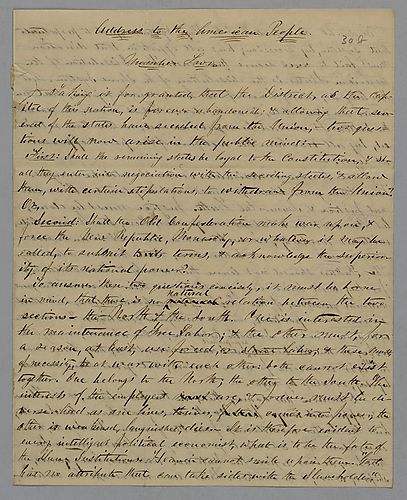 Address to the American People.
308
Number Seven.
Taking it for granted that the District, as the Cap-
itol of the nation, is forever abandoned; & allowing that sev-
eral of the states have seceded from the Union,— two ques-
tions will now arise in the public mind:—
First: Shall the remaining states be loyal to the Constitution, & sh-
all they enter into negociation with the seceding states, & allow
them, with certain stipulations, to withdraw from the Union?
Or,
Second: Shall the Old Confederation make war upon, &
force the New Republic, Monarchy, or whatever it may be
called, to submit to its terms, & acknowledge the superior-
ity of its national power?
To answer these two questions concisely, it must be borne
in mind, that there is no natural relation between the two
sections— the North & the South. One is interested in
the maintenance of Free Labor; & the other must, for
a season, at least, use forced, or slave labor; & these must
of necessity, be at war with each other: both cannot exist
together. One belongs to the North, the other to the South. The
interests of the employed are & forever must be di-
verse
other is weakened, languishes,
every intelligent political economist, what is to be the fate of
the Slave Institution. Heaven cannot smile upon them. God
has no attribute that can take sides with the Slaveholder.